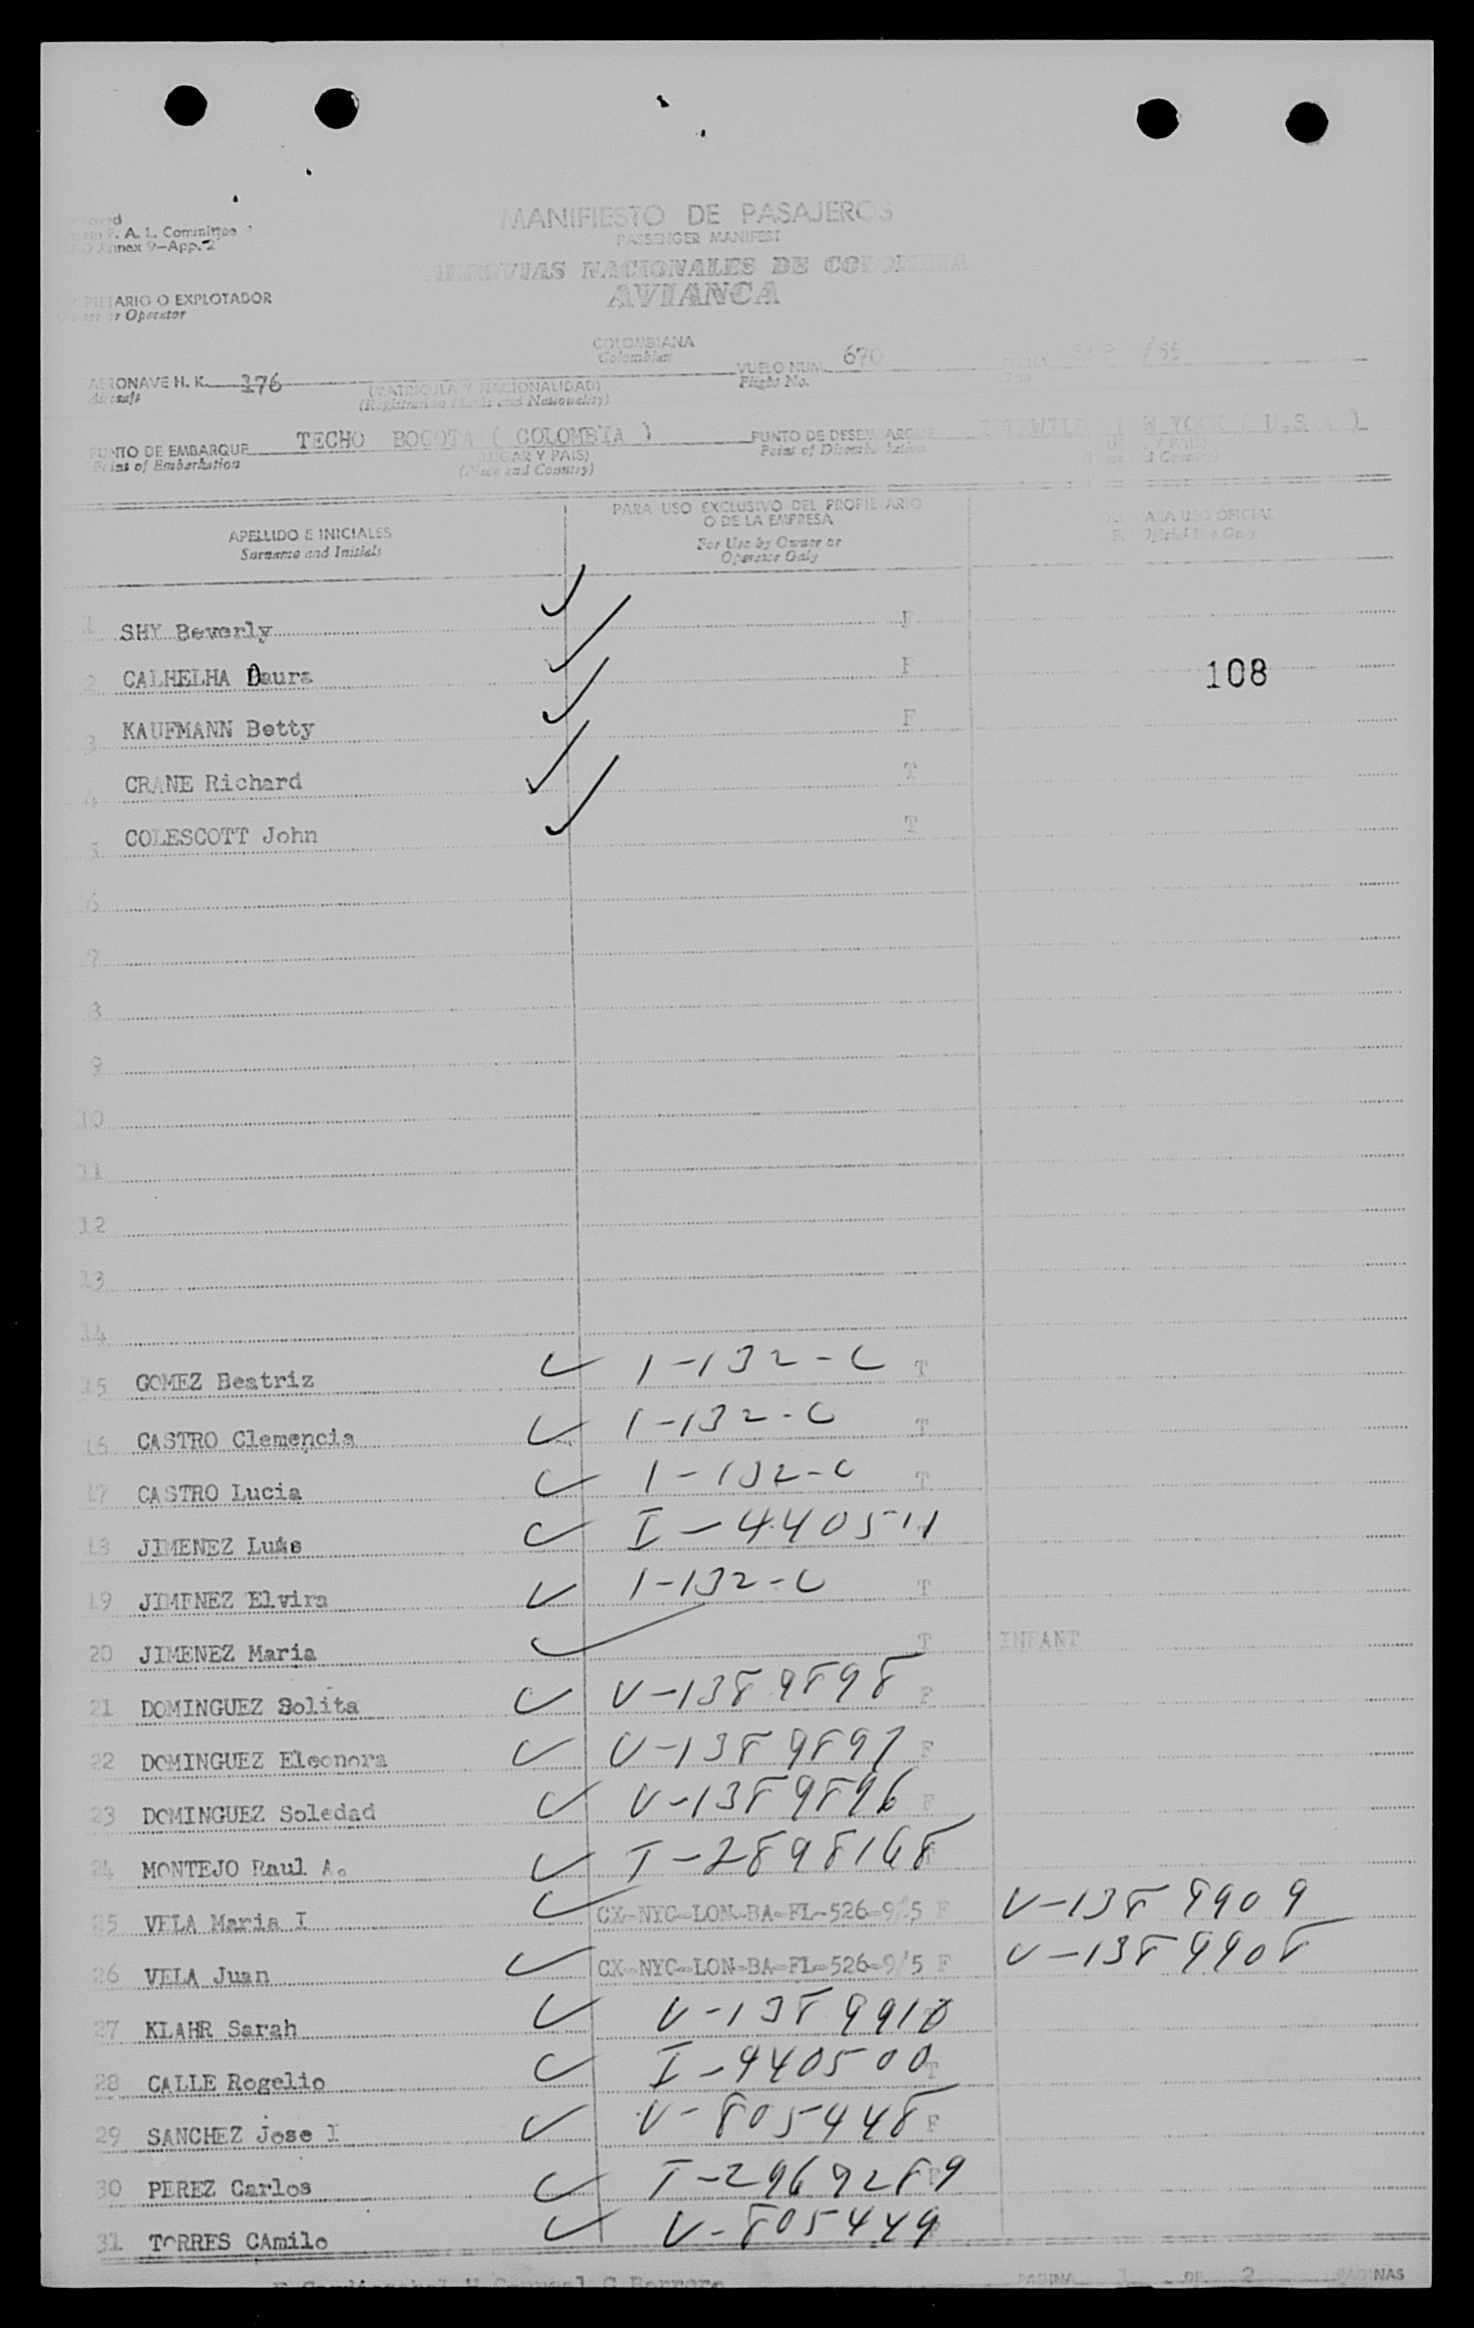 F. A. L. Committee
Annex 9-App. 2
MANIFIESTO DE PASAJEROS
PASSENGER MANIFEST
AEROVIAS NACIONALES DE COLOMBIA
AVIANCA
PROPIETARIO O EXPLOTADOR
Owner or Operator
COLOMBIANA
Colombian
AERONAVE H. K. 176
Aircraft
(MATRICULA Y NACIONALIDAD)
(Registration Marks and Nationality)
VUELO NUM. 670
Flight No.
/55
PUNTO DE EMBARQUE TECHO BOGOTA ( COLOMBIA )
Point of Embarkation
(LUGAR Y PAIS)
(Place and Country)
PUNTO DE DESEMBARQUE
Point of Disembarkation
APELLIDO E INICIALES
Surname and Initials
PARA USO EXCLUSIVO DEL PROPIETARIO
O DE LA EMPRESA
For Use by Owner or
Operator Only
PARA USO OFICIAL
Official Use Only
1 SHY Beverly F
2 CALHELHA Daura F 108
3 KAUFMANN Betty F
4 CRANE Richard T
5 COLESCOTT John T
6
7
8
9
10
11
12
13
14
15 GOMEZ Beatriz 1-132-C T
16 CASTRO Clemencia 1-132-C T
17 CASTRO Lucia 1-132-C T
18 JIMENEZ Luis I-440511
19 JIMENEZ Elvira 1-132-C T
20 JIMENEZ Maria T INFANT
21 DOMINGUEZ Solita V-1389898 F
22 DOMINGUEZ Eleonora V-1389897 F
23 DOMINGUEZ Soledad V-1389896 F
24 MONTEJO Raul A. I-2898168
25 VELA Maria I CX-NYC-LON-BA-FL-526-9/5 F V-1389909
26 VELA Juan CX-NYC-LON-BA-FL-526-9/5 F V-1389908
27 KLAHR Sarah V-1389910
28 CALLE Rogelio I-440500 T
29 SANCHEZ Jose I V-805448 F
30 PEREZ Carlos I-2969289
31 TORRES CAmilo V-805449
PAGINA 1 DE 2 PAGINAS